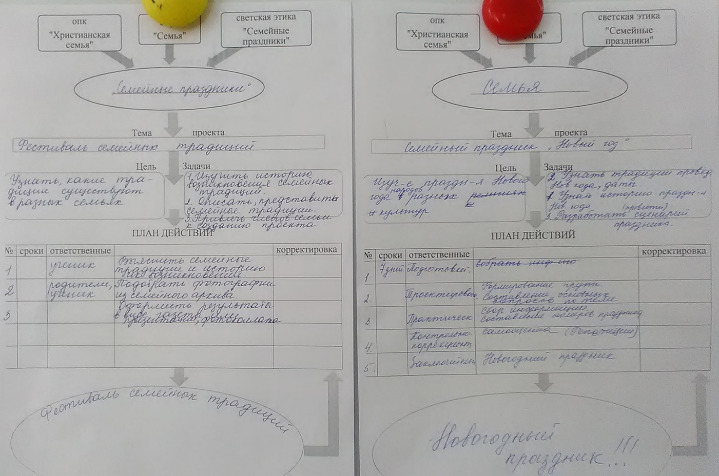 опк
"Христианская
семья"
"Семья"
светская этика
"Семейные
праздники"
"Семейные праздники"
Тема проекта
Фестиваль семейных традиций
Цель
Задачи
Узнать, какие тра-
диции существуют
в разных семьях
1. Изучить историю
возникновения семейных
традиций.
2. Описать, представить
семейные традиции
3. Привлечь членов семьи
к созданию проекта
ПЛАН ДЕЙСТВИЙ
№ сроки ответственные корректировка
1 ученик Выяснить семейные
традиции и историю
их возникновения
2 родители, Подобрать фотографии
ученик из семейного архива
3 Оформить результаты
в виде газеты,
презентации, фотоколлажа
Фестиваль семейных традиций
опк
"Христианская
семья"
"Семья"
светская этика
"Семейные
праздники"
Семья
Тема проекта
Семейный праздник "Новый год"
Цель
Задачи
Изуч-е праздн-я Нового
года в разных
народов
и культур
1. Узнать традиции провед.
Нов года, даты
2. Узнать историю праздн-я
Нов года
3. Разработать сценарий
праздника.
ПЛАН ДЕЙСТВИЙ
№ сроки ответственные корректировка
1 7 дней Подготовит.
2 Формирование групп
Составление основных
3 Практическ Сбор информации
Составление номеров праздника
4. Контрольно самооценка
коррекцион
5. Заключительн Новогодний праздник
Новогодный
праздник!!!